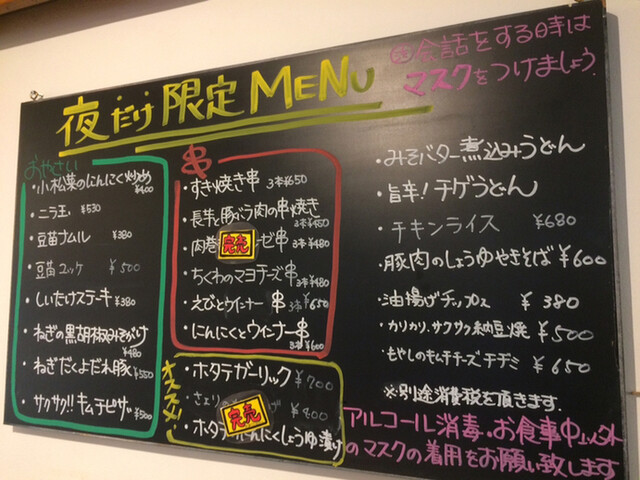 夜だけ限定MENU
会話をする時は
マスクをつけましょう
おやさい
・小松菜のにんにく炒め
¥400
・ニラ玉 ¥530
・豆苗ナムル ¥380
・豆苗ユッケ ¥500
・しいたけステーキ ¥380
・ねぎの黒胡椒みそがけ
¥480
・ねぎだくよだれ豚 ¥550
・サクサク!!キムチピザ ¥500
串
・すき焼き串 3本¥650
・長芋と豚バラ肉の串焼き
3本¥450
・肉巻 ゼ串 3本¥480
完売
・ちくわのマヨチーズ串 3本¥480
・えびとウインナー串 3本¥650
・にんにくとウインナー串
3本¥600
オススメ!
・ホタテガーリック ¥700
・さより ¥400
完売
・ホタテ にんにくしょうゆ漬け
・みそバター煮込みうどん
・旨辛!チゲうどん
・チキンライス ¥680
・豚肉のしょうゆやきそば ¥600
・油揚げチップス ¥380
・カリカリ、サクサク納豆焼 ¥500
・もやしのキムチチーズチヂミ ¥650
※別途消費税を頂きます。
アルコール消毒・お食事中以外
のマスクの着用をお願い致します